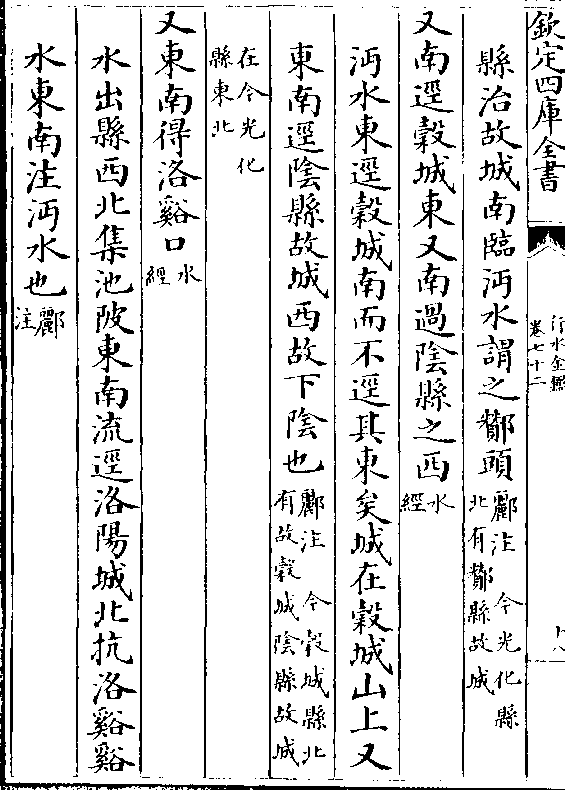 欽定四庫全書
行水金鑑
卷七十二
縣治故城南臨沔水謂之酇頭酈注今光化縣北有酇縣故城
又南逕穀城東又南過陰縣之西水經
沔水東逕穀城南而不逕其東矣城在穀城山上又
東南逕陰縣故城西故下陰也酈注今穀城縣北有故穀城陰縣故城
在今光化縣東北
又東南得洛谿口水經
水出縣西北集池陂東南流逕洛陽城北抗洛谿谿
水東南注沔水也酈注